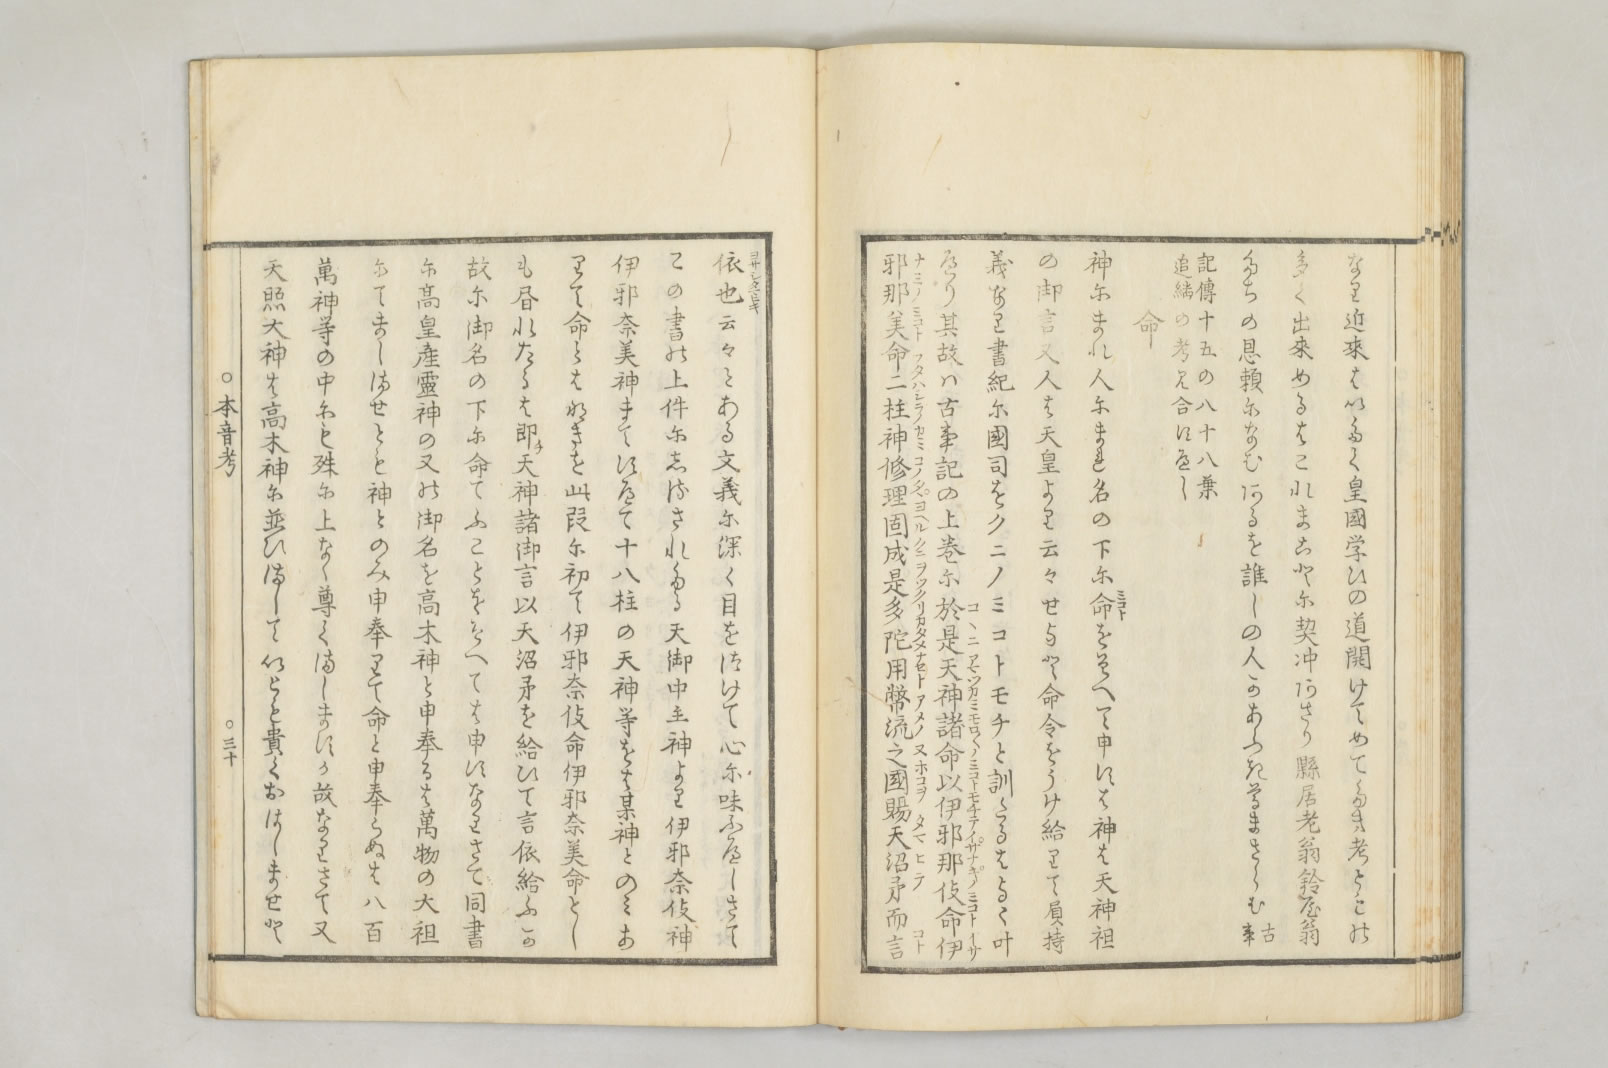 なり近來はいたく皇國学ひの道開けてめてたき考ともの
多く出來めるはこれまさに契冲阿闍梨縣居老翁鈴屋翁
たちの恩頼になむあるを誰しの人かあふき尊まさらむ古事
記傳十五の八十八葉
追繼の考見合すへし
命
神にまれ人にまれ名の下に命をそへて申すは神は天神祖
の御言又人は天皇より云々せよと命令をうけ給りて負持
義なり書紀に國司をクニノミコトモチと訓たるはよく叶
へり其故ハ古事記の上巻に於是天神諸命以伊邪那伎命伊
邪那美命二柱神修理固成是多陀用幣流之國賜天沼矛而言
依也云々とある文義に深く目をつけて心に味ふへしさて
この書の上件にしるされたる天御中主神より伊邪奈伎神
伊邪奈美神まてすへて十八柱の天神等をは某神とのみあ
りて命とはなきを此段に初て伊邪奈伎命伊邪奈美命とし
も昼れたるは即天神諸御言以天沼矛を給ひて言依給ふか
故に御名の下に命てふことをそへては申すなりさて同書
に高皇産靈神の又の御名を高木神と申奉るは萬物の大祖
にてましませとも神とのみ申奉りて命と申奉らぬは八百
萬神等の中にも殊に上なく尊くましますか故なりさて又
天照大神は高木神に並ひまして いとも貴くおはしませと
○本音考
○三十